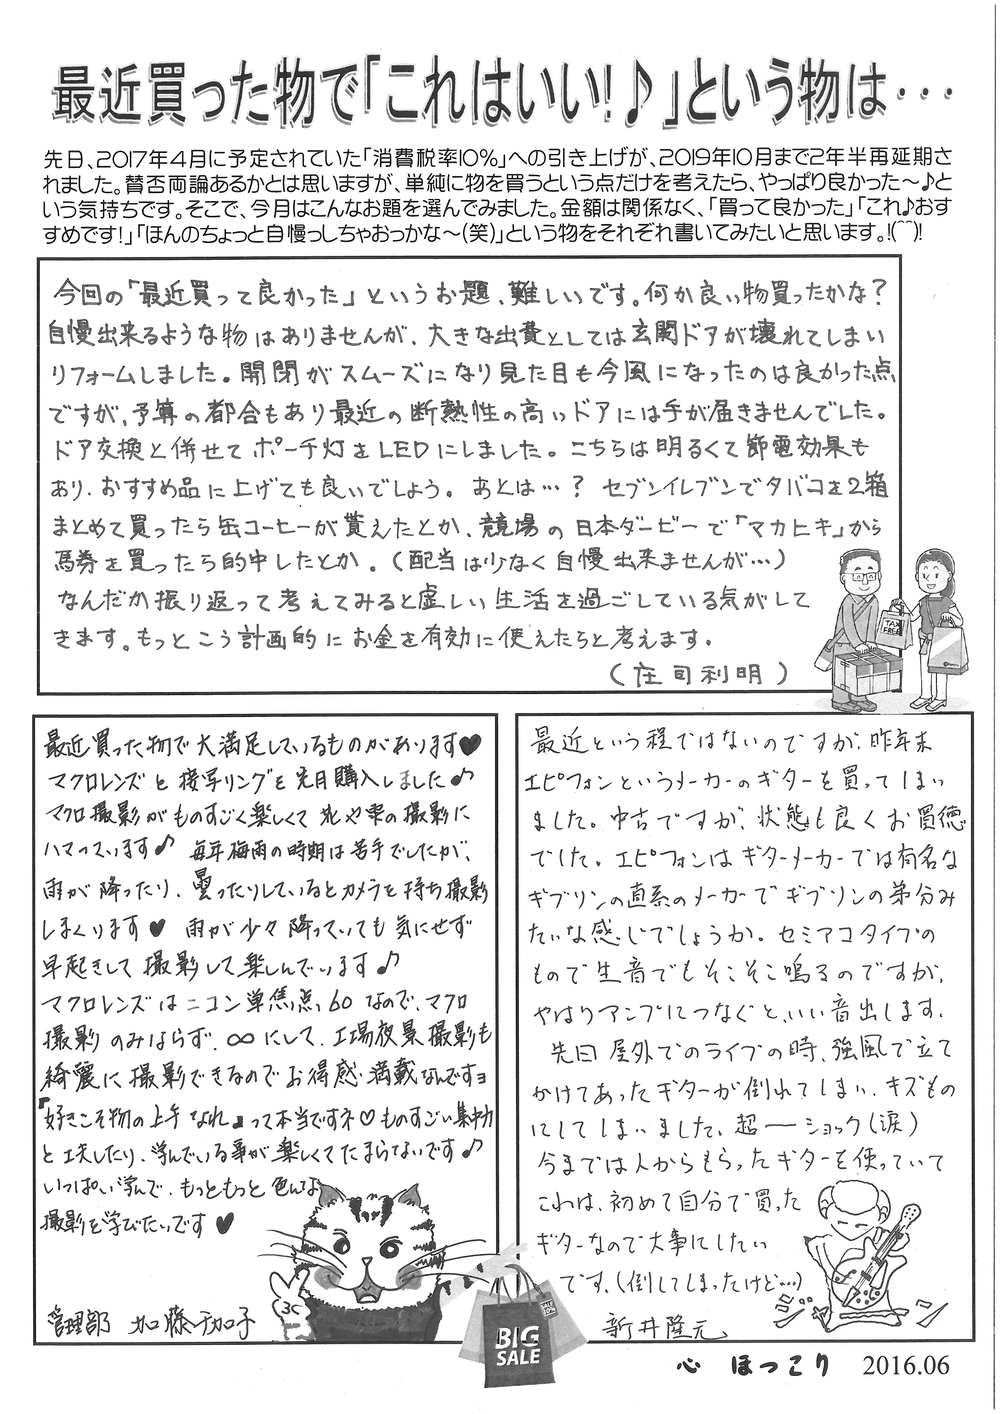 最近買った物で「これはいい!♪」という物は・・・
先日、2017年4月に予定されていた「消費税率10%」への引き上げが、2019年10月まで2年半再延期さ
れました。賛否両論あるかとは思いますが、単純に物を買うという点だけを考えたら、やっぱり良かった〜♪と
いう気持ちです。そこで、今月はこんなお題を選んでみました。金額は関係なく、「買って良かった」「これ♪おす
すめです!」「ほんのちょっと自慢っしちゃおっかな〜(笑)」という物をそれぞれ書いてみたいと思います。!(^^)!
今回の「最近買って良かった」というお題、難しいです。何か良い物買ったかな?
自慢出来るような物はありませんが、大きな出費としては玄関ドアが壊れてしまい
リフォームしました。開閉がスムーズになり見た目も今風になったのは良かった点
ですが、予算の都合もあり最近の断熱性の高いドアには手が届きませんでした。
ドア交換と併せてポーチ灯をLEDにしました。こちらは明るくて節電効果も
あり、おすすめ品に上げても良いでしょう。あとは…? セブンイレブンでタバコを2箱
まとめて買ったら缶コーヒーが貰えたとか、競場の日本ダービーで「マカヒキ」から
馬券を買ったら的中したとか。(配当は少なく自慢出来ませんが…)
なんだか振り返って考えてみると虚しい生活を過ごしている気がして
きます。もっとこう計画的にお金を有効に使えたらと考えます。
(庄司利明)
TAX FREE
最近買った物で大満足しているものがあります♥
マクロレンズと接写リングを先月購入しました♪
マクロ撮影がものすごく楽しくて花や雫の撮影に
ハマっています♪ 毎年梅雨の時期は苦手でしたが、
雨が降ったり、曇ったりしているとカメラを持ち撮影
しまくります♥ 雨が少々降っていても気にせず
早起きして撮影して楽しんでいます♪
マクロレンズはニコン単焦点60なので、マクロ
撮影のみならず、∞にして、工場夜景撮影も
綺麗に撮影できるのでお得感満載なんですヨ
『好きこそ物の上手なれ』って本当ですネ♡ものすごい集中力
と工夫したり、学んでいる事が楽しくてたまらないです♪
いっぱい学んで、もっともっと色んな
撮影を学びたいです♥
管理部 加藤
最近という程ではないのですが、昨年末
エピフォンというメーカーのギターを買ってしまい
ました。中古ですが、状態も良くお買徳
でした。エピフォンはギターメーカーでは有名な
ギブソンの直系のメーカーでギブソンの弟分み
たいな感じでしょうか。セミアコタイプの
もので生音でもそこそこ鳴るのですが、
やはりアンプにつなぐと、いい音出します。
先日屋外でのライブの時、強風で立て
かけてあったギターが倒れてしまい、キズもの
にしてしまいました、超ーショック(涙)
今までは人からもらったギターを使っていて
これは、初めて自分で買った
ギターなので大事にしたい
です。(倒してしまったけど…)
新井隆元
BIG
SALE
心 ほっこり 2016.06